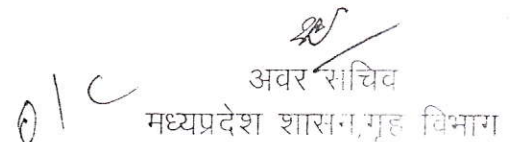 अवर सचिव
O/C
मध्यप्रदेश शासन,गृह विभाग